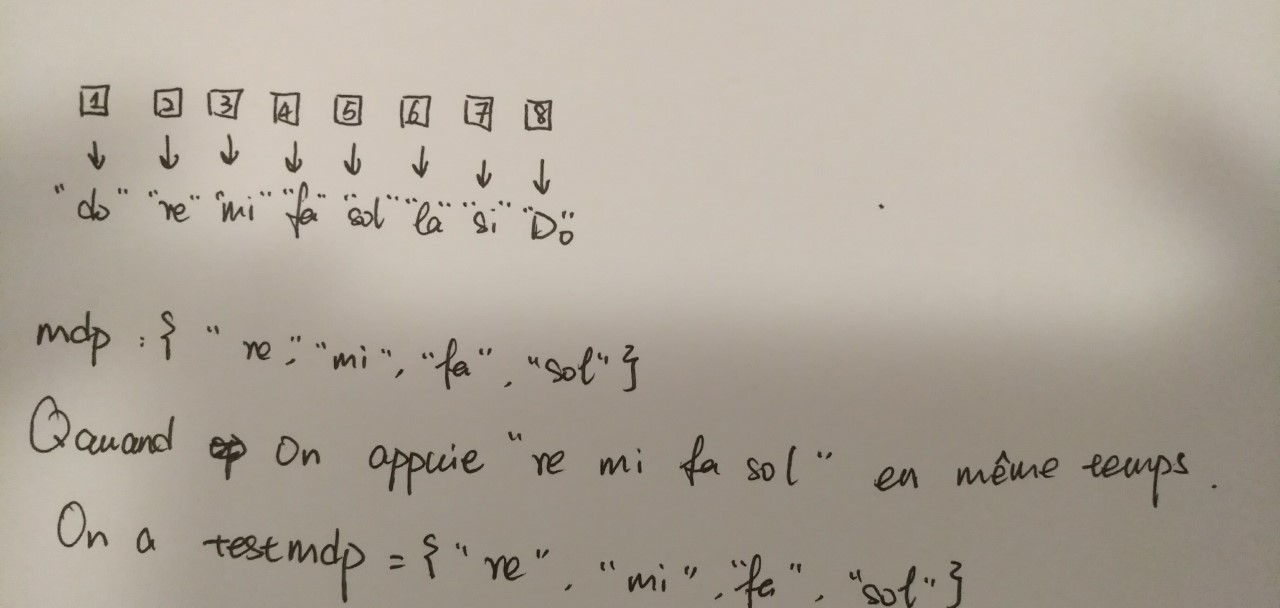 1 2 3 4 5 6 7 8
↓ ↓ ↓ ↓ ↓ ↓ ↓ ↓
"do" "re" "mi" "fa" "sol" "la" "si" "Do"
mdp : { "re", "mi", "fa", "sol" }
Qauand On appuie "re mi fa sol" en même temps.
On a testmdp = { "re", "mi", "fa", "sol" }